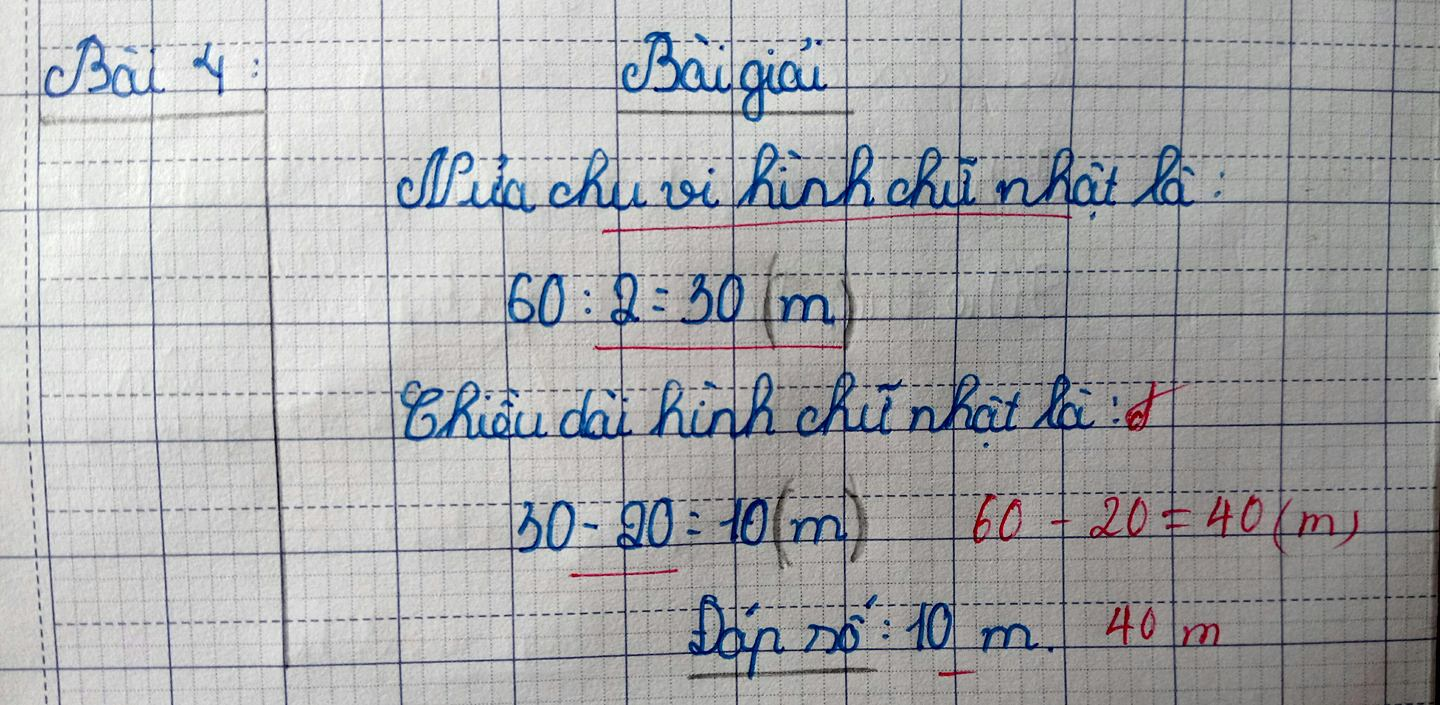 Bài 4: Bài giải
Nửa chu vi hình chữ nhật là:
60 : 2 = 30 (m)
Chiều dài hình chữ nhật là: đ
30 - 20 = 10 (m) 60 - 20 = 40 (m)
Đáp số: 10 m. 40 m